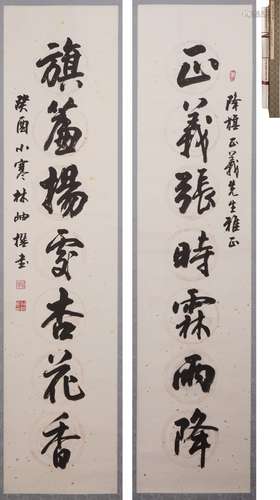 降旗正義先生雅正
正義張時霖雨降
旗簾揚處杏花香
癸酉小寒林岫撰書